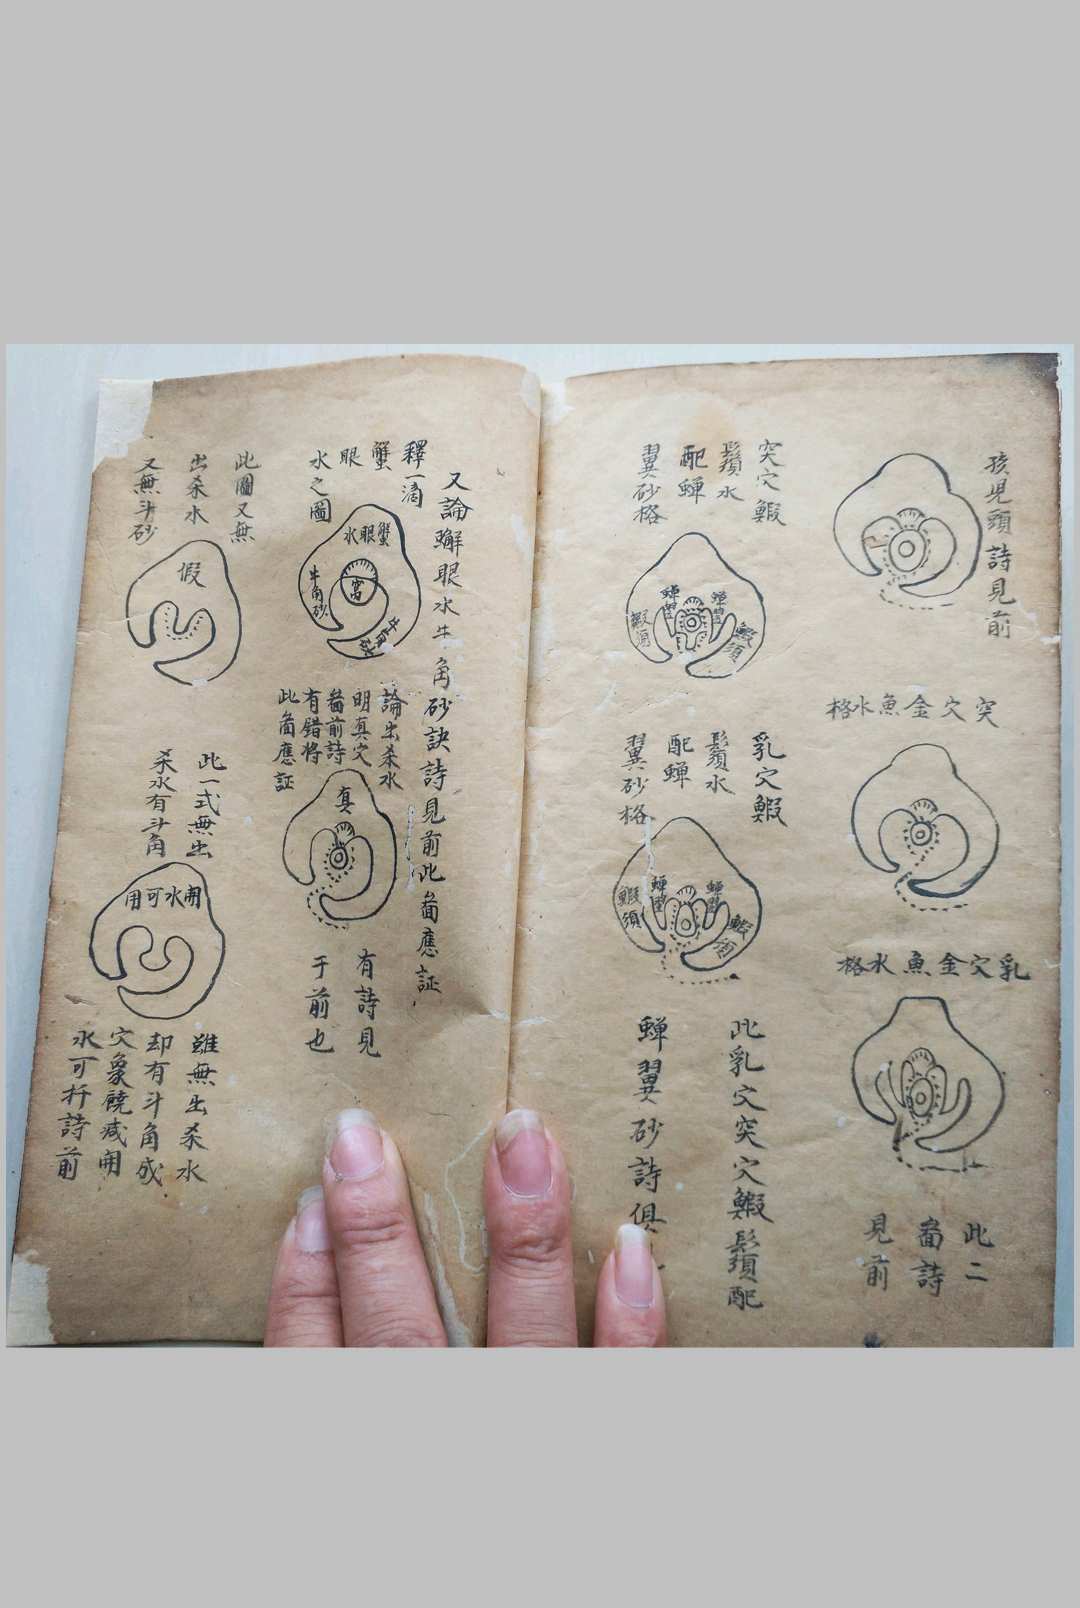 孩児頭詩見前
突穴金魚水格
乳穴金魚水格
此二
啚詩
見前
突穴鰕
鬚水
配蟬
翼砂格
蟬翼
蟬翼
鰕須
鰕須
乳穴鰕
鬚水
配蟬
翼砂格
蟬翼
蟬翼
鰕須
鰕須
此乳穴突穴鰕鬚配
蟬翼砂詩俱
又論蠏眼水牛角砂訣詩見前此啚應証
釋一滴
蟹
眼
水之圖
蟹眼水
窩
牛角砂
牛角砂
論出杀水
明真穴
啚前詩
有錯将
此啚應証
真
有詩見
于前也
此圖又無
出杀水
又無斗砂
假
此一式無出
杀水有斗角
開水可用
雖無出杀水
却有斗角成
穴象饒减開
水可扦詩前